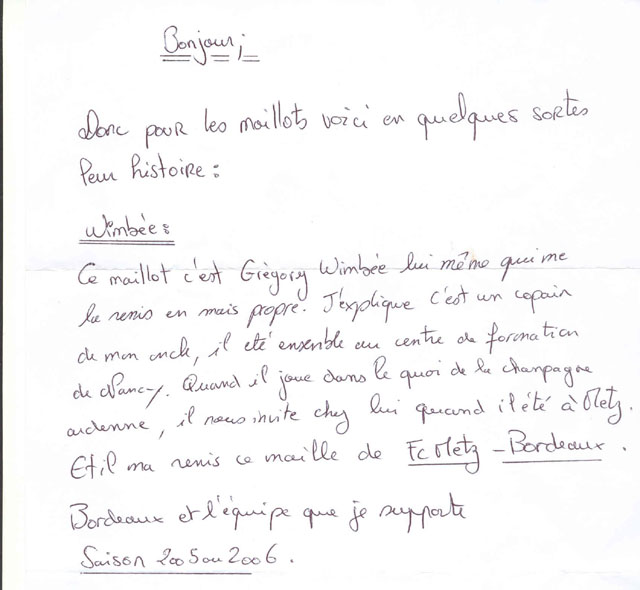 Bonjour;
Donc pour les maillots voici en quelques sortes
leur histoire :
Wimbée :
Ce maillot c'est Grégory Wimbée lui même qui me
la remis en mais propre. J'explique c'est un copain
de mon oncle, il été ensemble au centre de formation
de Nancy. Quand il joue dans le quoi de la champagne
ardenne, il nous invite chez lui quand il été à Metz.
Et il ma remis ce maille de Fc Metz - Bordeaux.
Bordeaux et l'équipe que je supporte
Saison 2005 ou 2006.